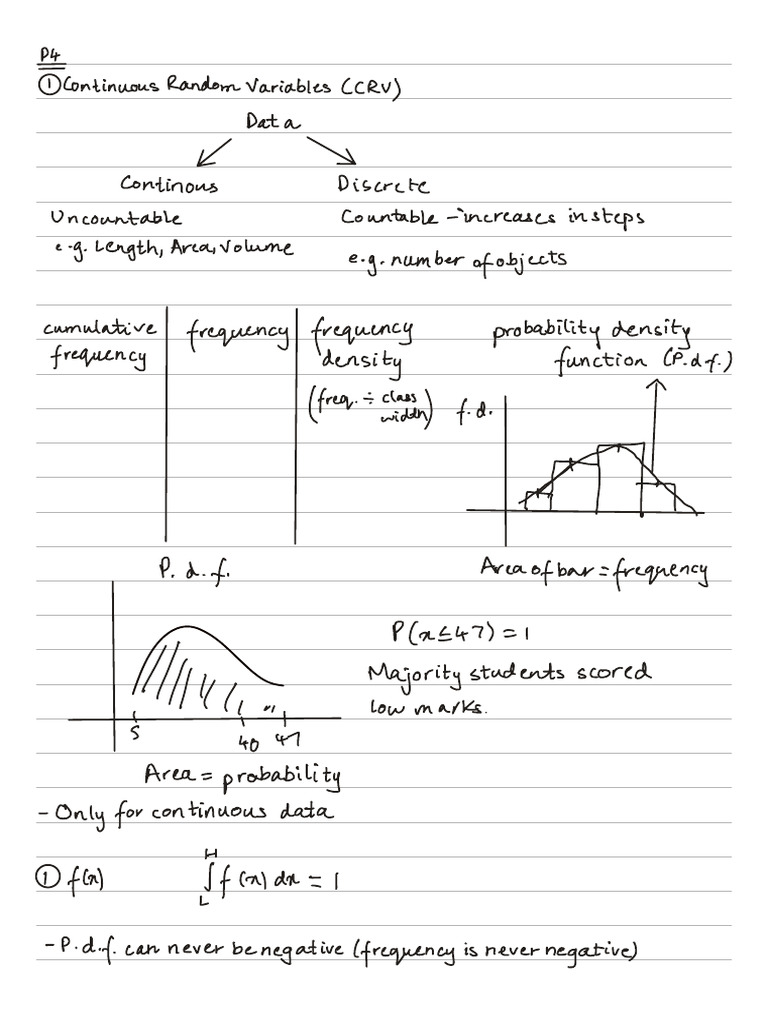 P4
① Continuous Random Variables (CRV)
Data
Continous Discrete
Uncountable Countable - increases in steps
e.g. Length, Area, Volume e.g. number of objects
cumulative frequency frequency frequency probability density
frequency density function (P.d.f.)
(freq. ÷ class width) f.d.
P.d.f. Area of bar = frequency
P(x≤47) = 1
Majority students scored
low marks.
5 40 47
Area = probability
- Only for continuous data
① f(x) ∫ H L f(x) dx = 1
- P.d.f. can never be negative (frequency is never negative)